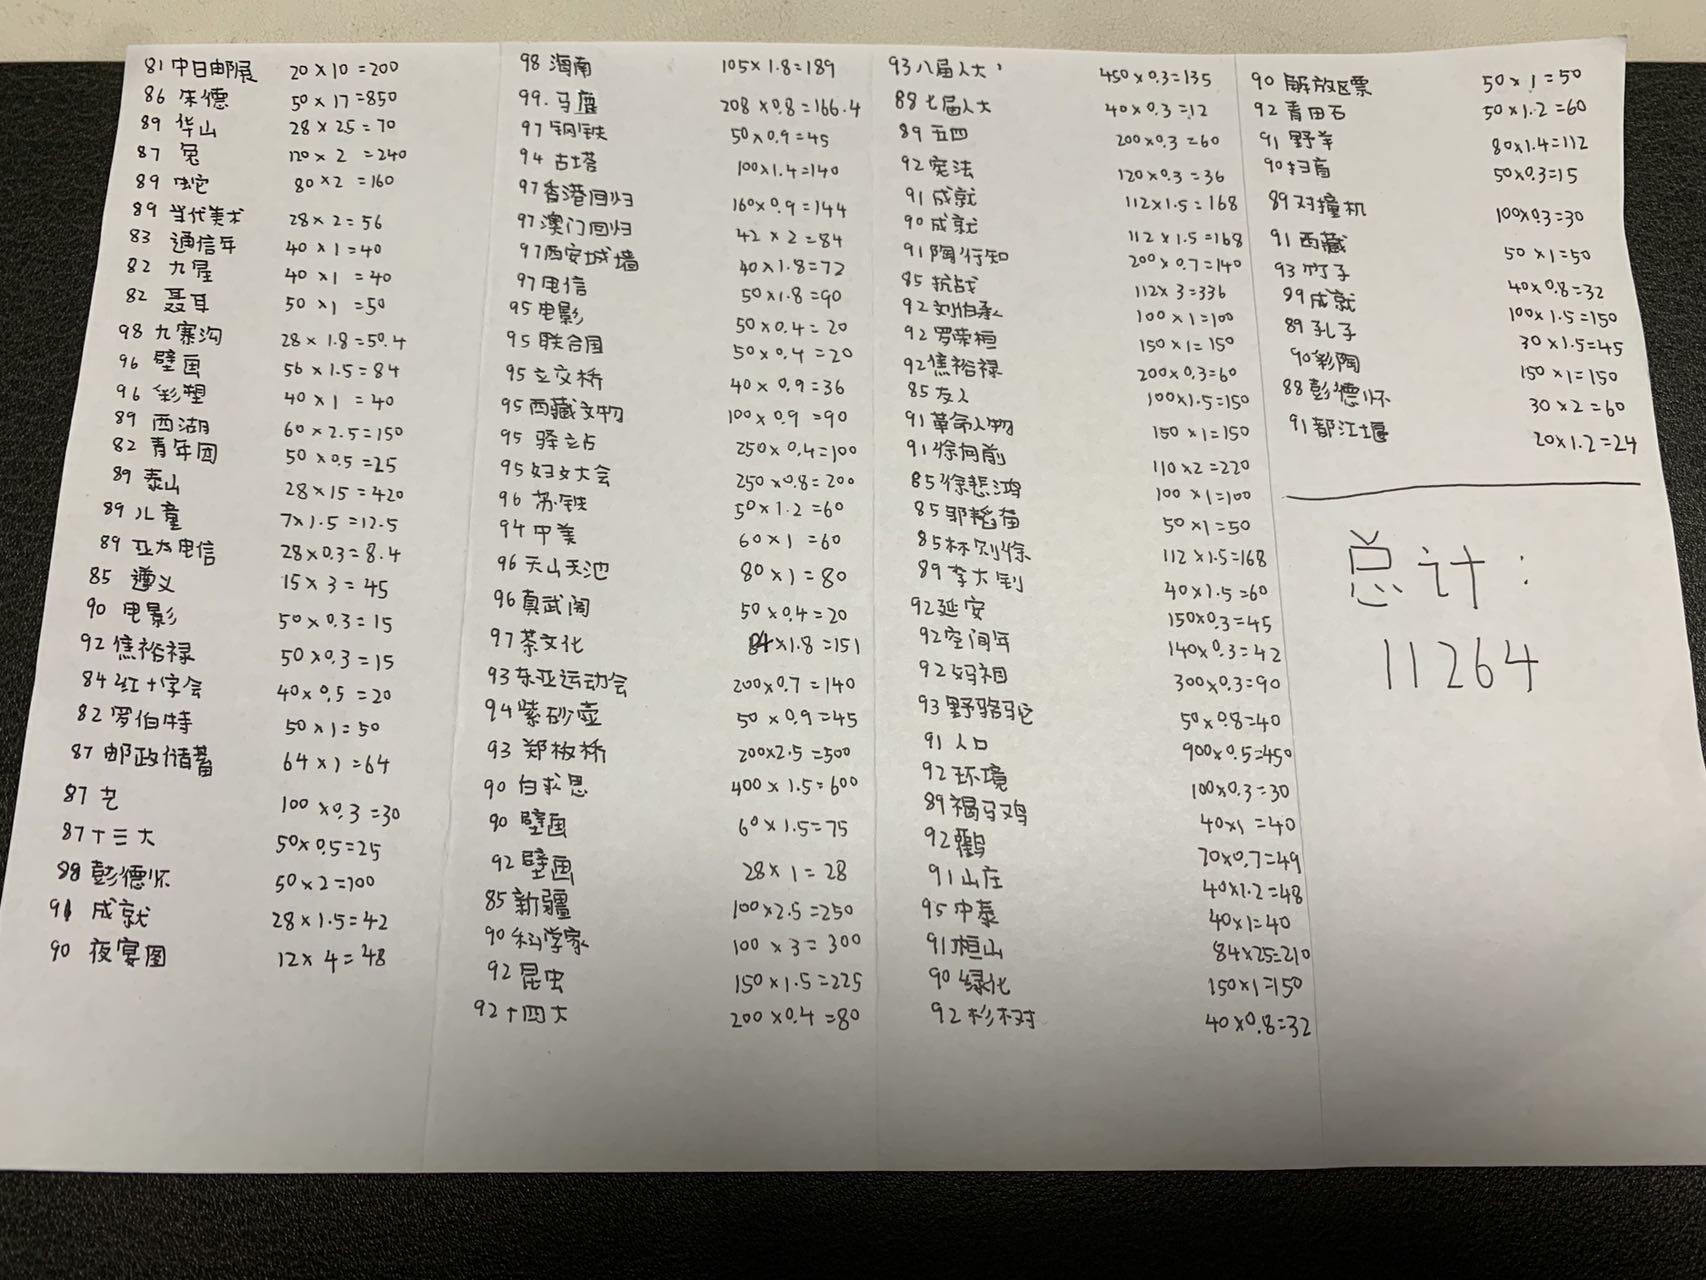 81 中日邮展 20×10=200
86 朱德 50×17=850
89 华山 28×25=70
87 兔 120×2=240
89 蛇 80×2=160
89 当代美术 28×2=56
83 通信年 40×1=40
82 九星 40×1=40
82 聂耳 50×1=50
98 九寨沟 28×1.8=50.4
96 壁画 56×1.5=84
96 彩塑 40×1=40
89 西湖 60×2.5=150
82 青年团 50×0.5=25
89 泰山 28×15=420
89 儿童 7×1.5=12.5
89 亚太电信 28×0.3=8.4
85 遵义 15×3=45
90 电影 50×0.3=15
92 焦裕禄 50×0.3=15
84 红十字会 40×0.5=20
82 罗伯特 50×1=50
87 邮政储蓄 64×1=64
87 艺 100×0.3=30
87 十三大 50×0.5=25
88 彭德怀 50×2=100
91 成就 28×1.5=42
90 夜宴图 12×4=48
98 海南 105×1.8=189
99. 马鹿 208×0.8=166.4
97 钢铁 50×0.9=45
94 古塔 100×1.4=140
97 香港回归 160×0.9=144
97 澳门回归 42×2=84
97 西安城墙 40×1.8=72
97 电信 50×1.8=90
95 电影 50×0.4=20
95 联合国 50×0.4=20
95 立交桥 40×0.9=36
95 西藏文物 100×0.9=90
95 驿站 250×0.4=100
95 妇女大会 250×0.8=200
96 苏铁 50×1.2=60
94 中美 60×1=60
96 天山天池 80×1=80
96 真武阁 50×0.4=20
97 茶文化 84×1.8=151
93 东亚运动会 200×0.7=140
94 紫砂壶 50×0.9=45
93 郑板桥 200×2.5=500
90 白求恩 400×1.5=600
90 壁画 60×1.5=75
92 壁画 28×1=28
85 新疆 100×2.5=250
90 科学家 100×3=300
92 昆虫 150×1.5=225
92 十四大 200×0.4=80
93 八届人大 450×0.3=135
88 七届人大 40×0.3=12
89 五四 200×0.3=60
92 宪法 120×0.3=36
91 成就 112×1.5=168
90 成就 112×1.5=168
91 陶行知 200×0.7=140
85 抗战 112×3=336
92 刘伯承 100×1=100
92 罗荣桓 150×1=150
92 焦裕禄 200×0.3=60
85 友人 100×1.5=150
91 革命人物 150×1=150
91 徐向前 110×2=220
85 徐悲鸿 100×1=100
85 邹韬奋 50×1=50
85 林则徐 112×1.5=168
89 李大钊 40×1.5=60
92 延安 150×0.3=45
92 空间年 140×0.3=42
92 妈祖 300×0.3=90
93 野骆驼 50×0.8=40
91 人口 900×0.5=450
92 环境 100×0.3=30
89 褐马鸡 40×1=40
92 鹳 70×0.7=49
91 山庄 40×1.2=48
95 中泰 40×1=40
91 恒山 84×25=210
90 绿化 150×1=150
92 杉树 40×0.8=32
90 解放区票 50×1=50
92 青田石 50×1.2=60
91 野羊 80×1.4=112
90 扫盲 50×0.3=15
89 对撞机 100×0.3=30
91 西藏 50×1=50
93 竹子 40×0.8=32
89 成就 100×1.5=150
89 孔子 30×1.5=45
90 彩陶 150×1=150
88 彭德怀 30×2=60
91 都江堰 20×1.2=24
总计:
11264